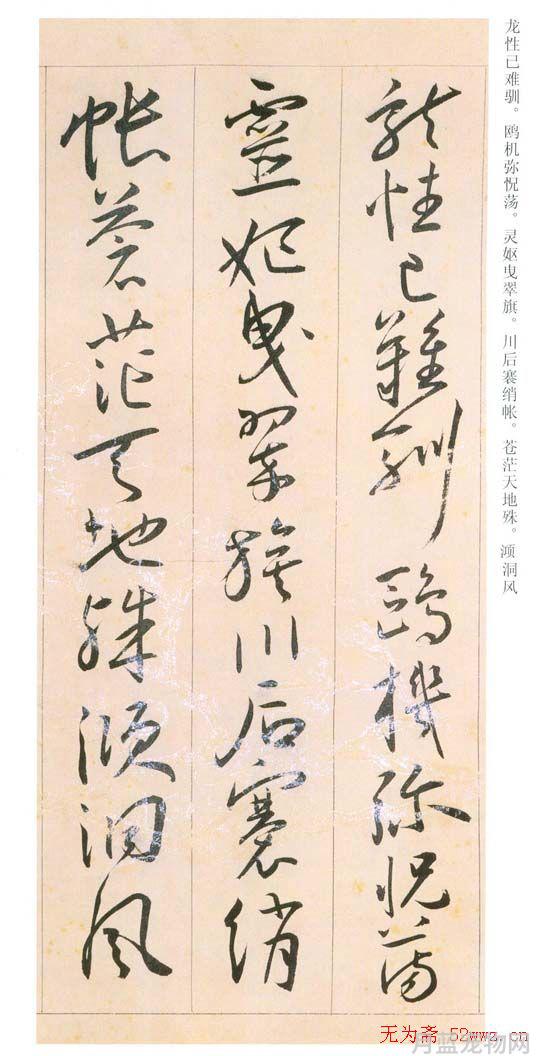 龙性已难驯。鸥机弥怳荡。灵妪曳翠旗。川后褰绡帐。苍茫天地殊。澒洞风
龍性已難馴鷗機弥怳蕩
靈妪曳翠旗川后褰綃
帐蒼茫天地殊澒洞風
无为斋 52wwz.cn
月蓝宠物网